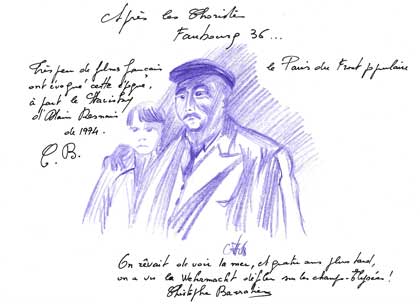 Après les Choristes
Faubourg 36...
Très peu de films français
ont évoqué cette époque,
à part le Stavisky
d'Alain Resnais
de 1974.
C. B.
le Paris du Front populaire
On rêvait de voir la mer, et quatre ans plus tard,
on a vu la Wehrmacht défiler sur les champs-Elysées!
Christophe Barratier